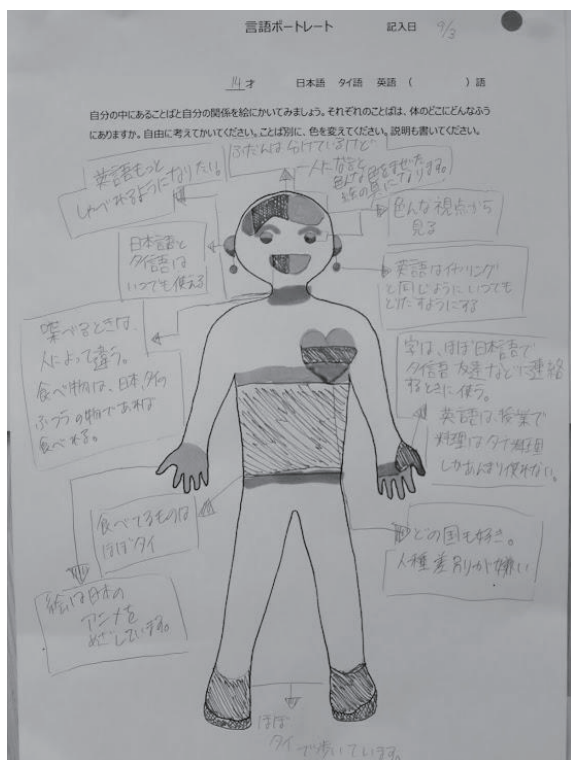 言語ポートレート 記入日 9/3
14才 日本語 タイ語 英語 ( )語
自分の中にあることばと自分の関係を絵にかいてみましょう。それぞれのことばは、体のどこにどんなふう
にありますか。自由に考えてかいてください。ことば別に、色を変えてください。説明も書いてください。
ふだんは分けているけど
人に言うと
色んな色をまぜた
絵の具になります。
英語もっと
しゃべれるようになりたい。
色んな視点から
見る
日本語と
タイ語は
いつでも使える
英語はイヤリング
と同じようにいつでも
とりだすようにする
喋べるときは、
人によって違う。
食べ物は、日本、タイの
ふつうの物であれば
食べれる。
字は、ほぼ日本語で
タイ語 友達などで連絡
するときに使う。
英語は、授業で
料理はタイ料理
しかあんまり使わない。
食べてるものは
ほぼタイ
どの国も好き。
人種差別が嫌い
絵は日本の
アニメを
めざしています。
ほぼ
タイで歩いています。